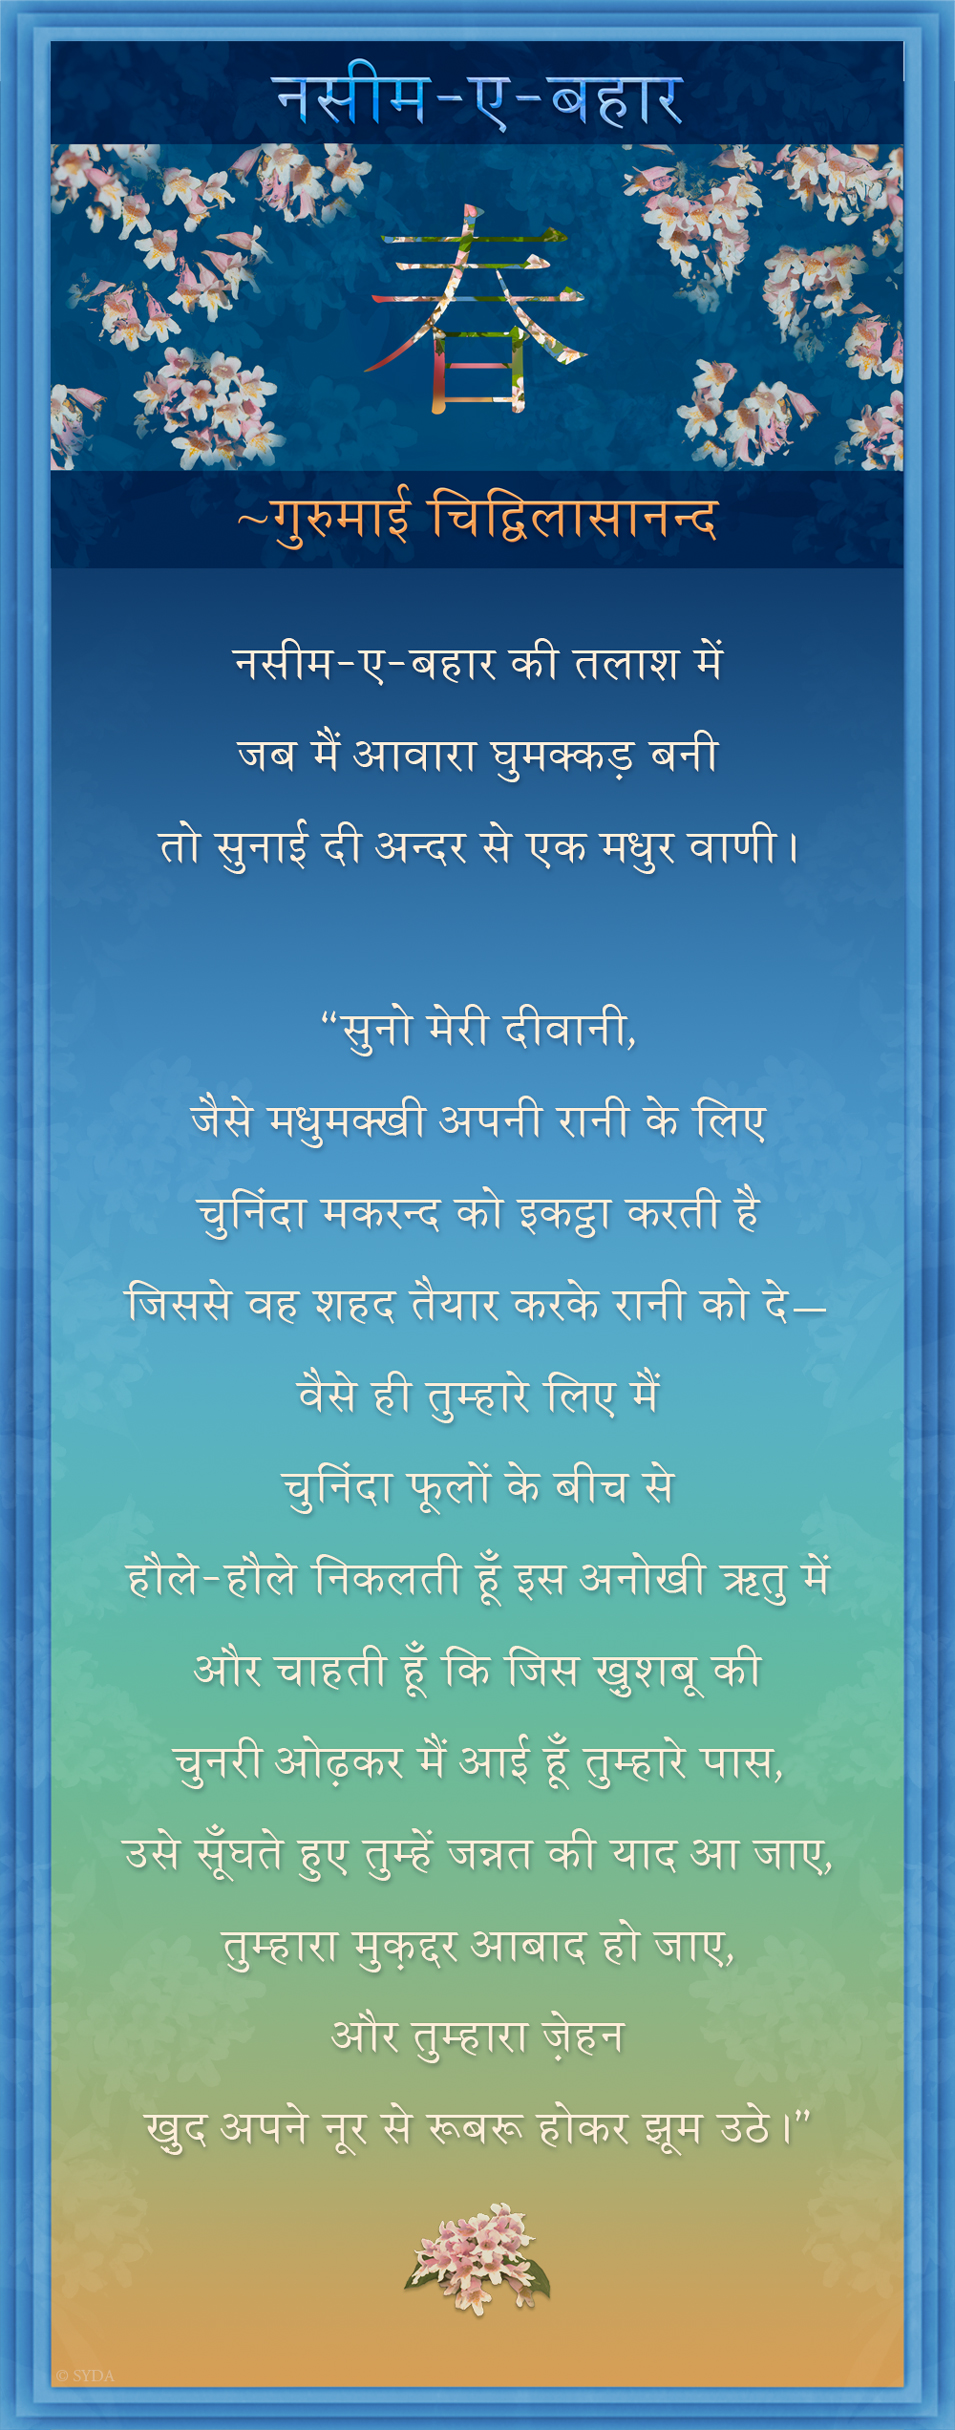 नसीम-ए-बहार
春
~गुरुमाई चिद्विलासानन्द
नसीम-ए-बहार की तलाश में
जब मैं आवारा घुमक्कड़ बनी
तो सुनाई दी अन्दर से एक मधुर वाणी।
“सुनो मेरी दीवानी,
जैसे मधुमक्खी अपनी रानी के लिए
चुनिंदा मकरन्द को इकट्ठा करती है
जिससे वह शहद तैयार करके रानी को दे—
वैसे ही तुम्हारे लिए मैं
चुनिंदा फूलों के बीच से
हौले-हौले निकलती हूँ इस अनोखी ऋतु में
और चाहती हूँ कि जिस खुशबू की
चुनरी ओढ़कर मैं आई हूँ तुम्हारे पास,
उसे सूँघते हुए तुम्हें जन्नत की याद आ जाए,
तुम्हारा मुक़द्दर आबाद हो जाए,
और तुम्हारा ज़ेहन
खुद अपने नूर से रूबरू होकर झूम उठे।”
© SYDA